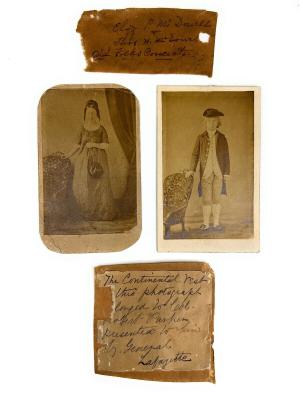 Eliz. P. McDowell
&
Thos. W. McDowell
Old Folks Concert
The Continental Vest
this photograph
longed to Col.
presented to him
by General
Lafayette